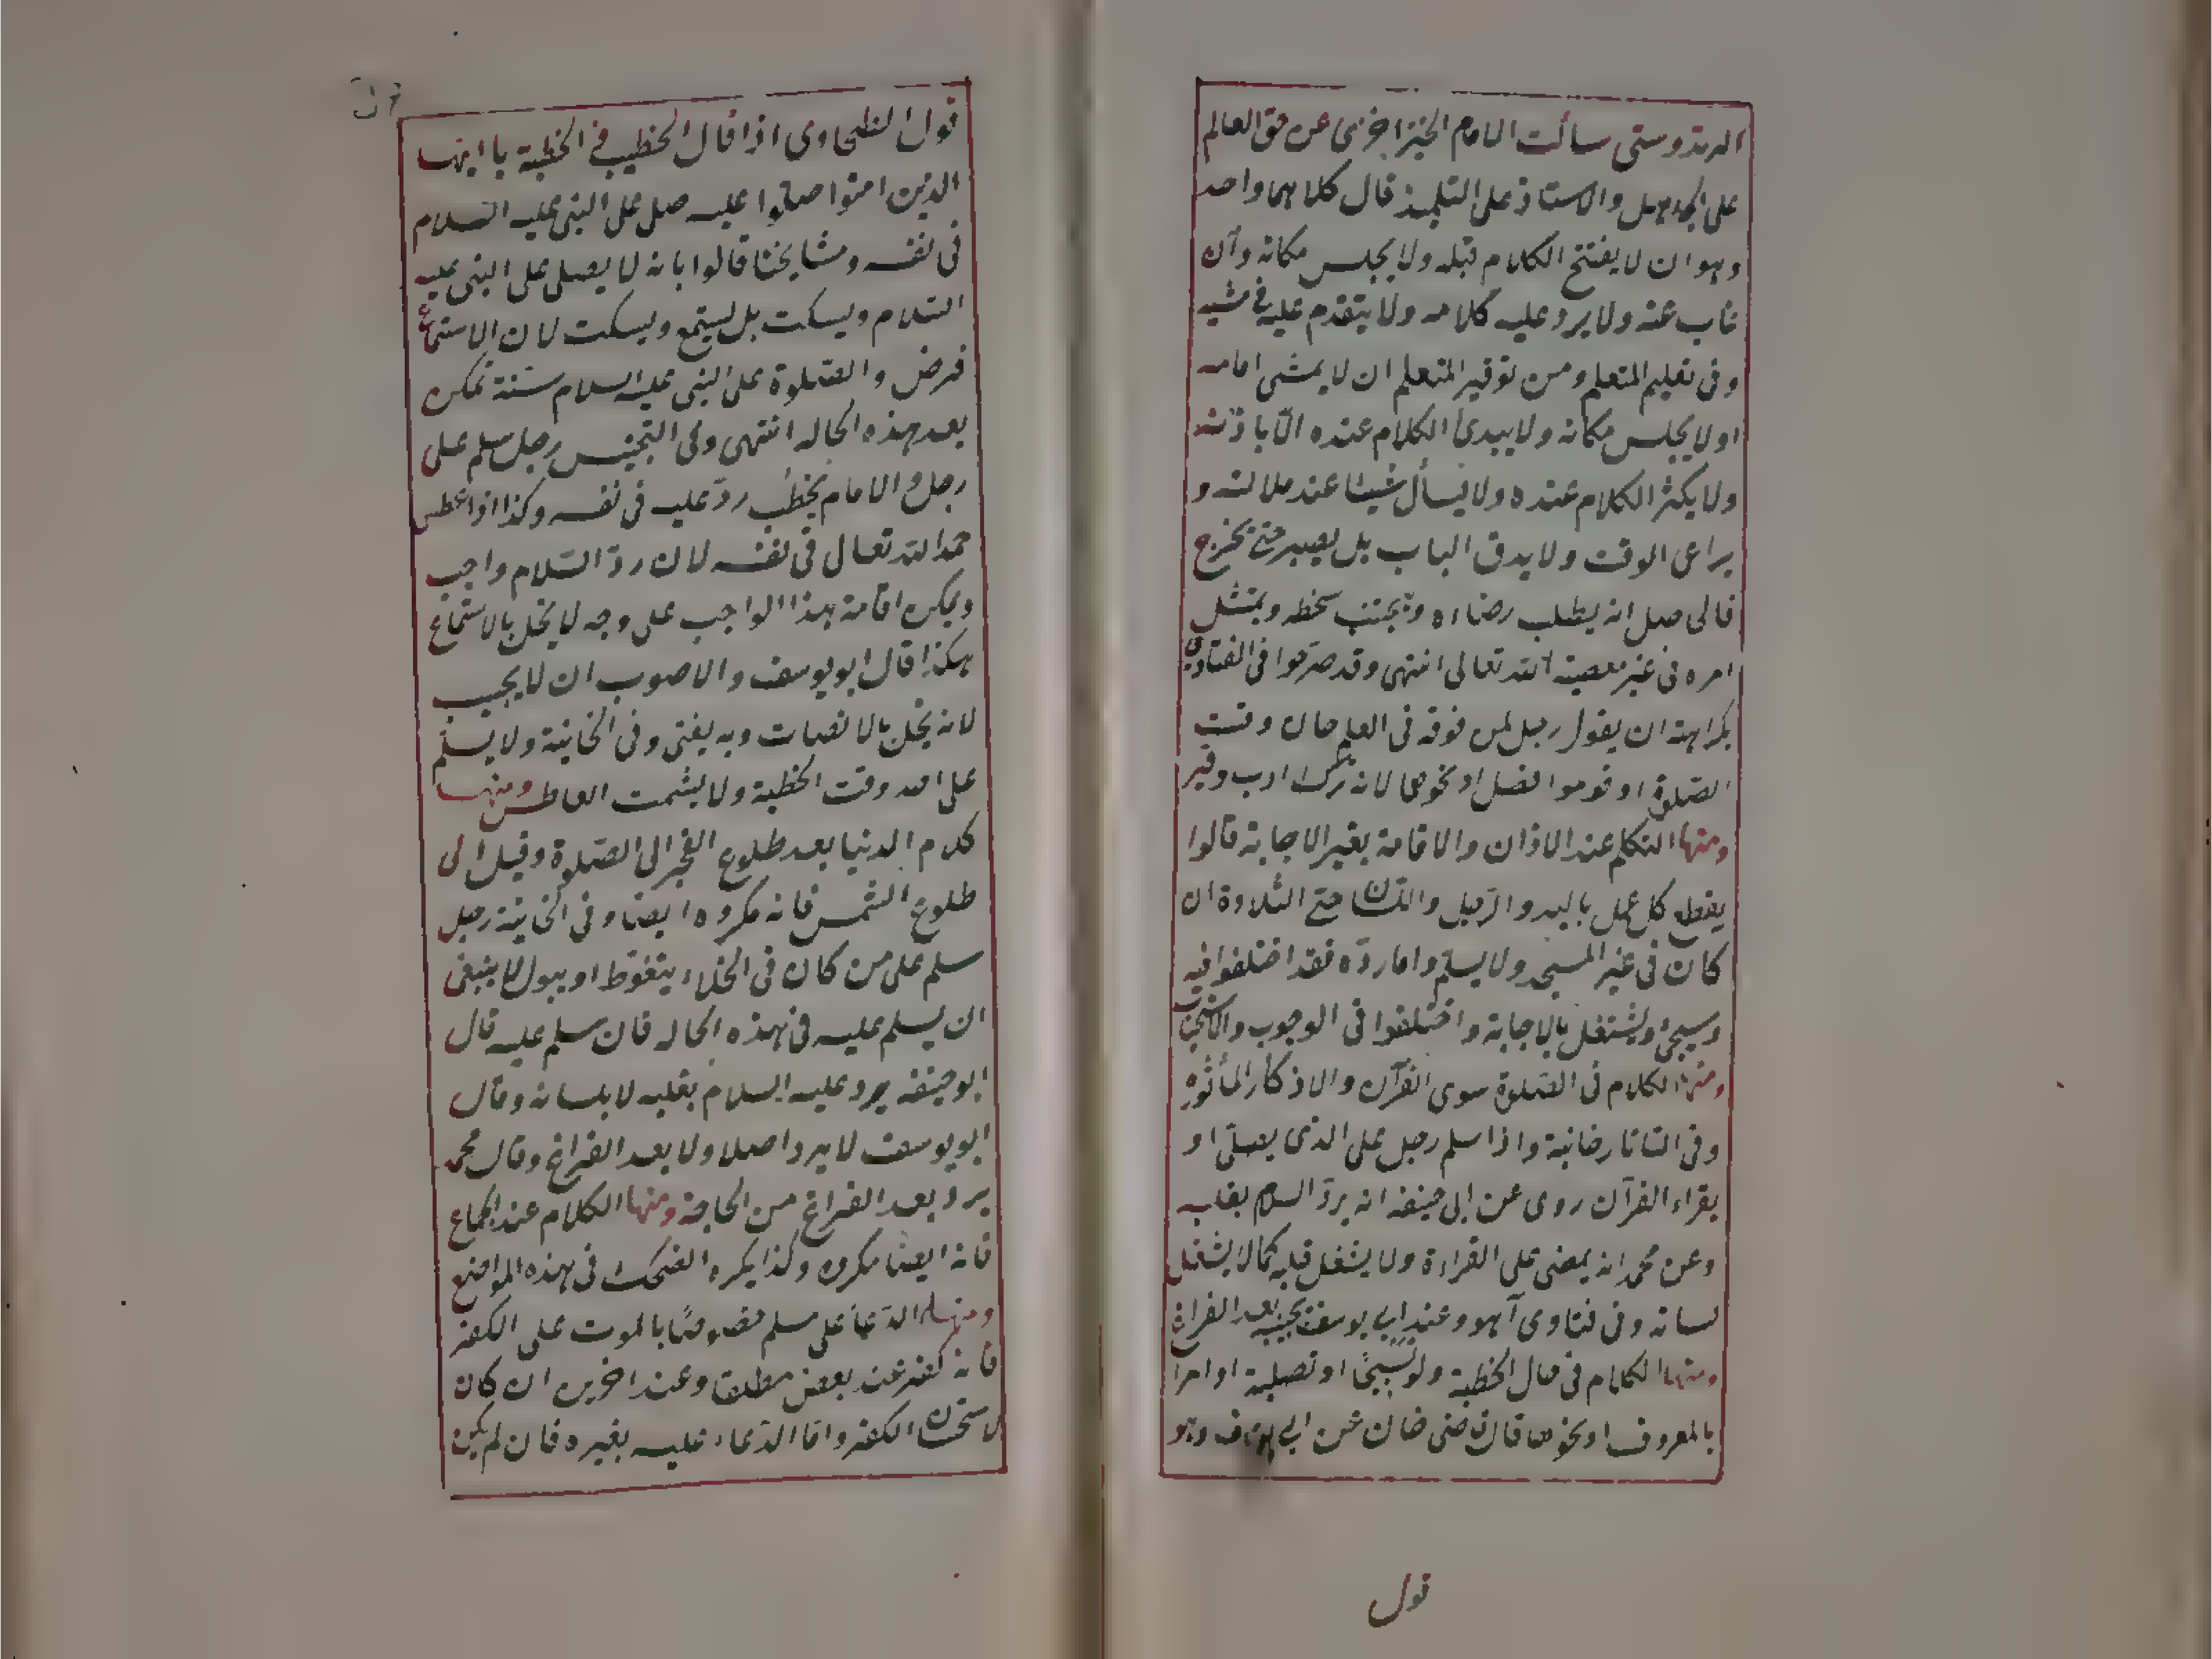 الزندوستى سألت الامام الخيزاخزى عن حق العالم
على الجاهل والاستاذ على التلميذ قال كلاهما واحد
وهو ان لا يفتتح الكلام قبله ولا يجلس مكانه وان
غاب عنه ولا يرد عليه كلامه ولا يتقدم عليه فى مشيه
وفى تعليم المتعلم ومن توقير المتعلم ان لا يمشى امامه
اولا يجلس مكانه ولا يبدئ الكلام عنده الّا باذنه
ولا يكثر الكلام عنده ولا يسأل شيئا عند ملالته و
يراعى الوقت ولا يدق الباب بل يصبر حتى يخرج
فالحاصل انه يطلب رضاءه ويجتنب سخطه ويمتثل
امره فى غير معصية الله تعالى انتهى وقد صرحوا فى الفتاوى
بكراهة ان يقول رجل لمن فوقه فى العلم حان وقت
الصّلوة او قوموا نصل او نحوها لانه ترك ادب وقير
ومنها التكلم عند الاذان والاقامة بغير الاجابة قالوا
يقطع كل عمل باليد والرّجل واللسان حتى التلاوة ان
كان فى غير المسجد ولا يسلّم واما ردّه فقد اختلفوا فيه
وسيجئ ويشتغل بالاجابة واختلفوا فى الوجوب والاستحباب
ومنها الكلام فى الصّلوة سوى القرآن والاذكار المأثورة
وفى التاتارخانية واذا سلم رجل على الذى يصلّى او
يقراء القرآن روى عن ابى حنيفه انه يردّ السلام بقلبه
وعن محمد انه يمضى على القراءة ولا يشغل قلبه كما لا يشغل
لسانه وفى فتاوى آهو وعند ابى يوسف يجيبه بعد الفراغ
ومنها الكلام فى حال الخطبة ولو تسبيحًا او تصلية او امرا
بالمعروف او نحوها قال قاضى خان عن ابى يوسف وهو
قول
قول الطحاوى اذا قال الخطيب فى الخطبة يا ايها
الذين امنوا صلّوا عليه صلى على النبى عليه السّلام
فى نفسه ومشايخنا قالوا بانه لا يصلى على النبى عليه
السّلام ويسكت بل يستمع ويسكت لان الاستماع
فرض والصّلوة على النبى عليه السلام سنة تمكن
بعد هذه الحاله انتهى وفى التجنيس رجل سلم على
رجل والامام يخطب ردّ عليه فى نفسه وكذا اذا عطس
حمد الله تعالى فى نفسه لان ردّ السّلام واجب
ويمكن اقامة هذا الواجب على وجه لا يخل بالاستماع
هكذا قال ابو يوسف والاصوب ان لا يجيب
لانه يخل بالانصات وبه يفتى وفى الخانية ولا يسلّم
على احد وقت الخطبة ولا يشمت العاطس ومنها
كلام الدنيا بعد طلوع الفجر الى الصّلوة وقيل الى
طلوع الشمس فانه مكروه ايضا وفى الخانية رجل
سلم على من كان فى الخلاء يتغوّط او يبول لا ينبغى
ان يسلم عليه فى هذه الحاله فان سلم عليه قال
ابو حنيفه يرد عليه السلام بقلبه لا بلسانه وقال
ابو يوسف لا يرد اصلا ولا بعد الفراغ وقال محمد
يرد بعد الفراغ من الحاجة ومنها الكلام عند الجماع
فانه ايضا مكروه وكذا يكره الضحك فى هذه المواضع
ومنها الدّعا على مسلم خصوصًا بالموت على الكفر
فانه كفر عند بعض مطلقا وعند اخرين ان كان
لاستحسان الكفر وامّا الدّعاء عليه بغيره فان لم يكن